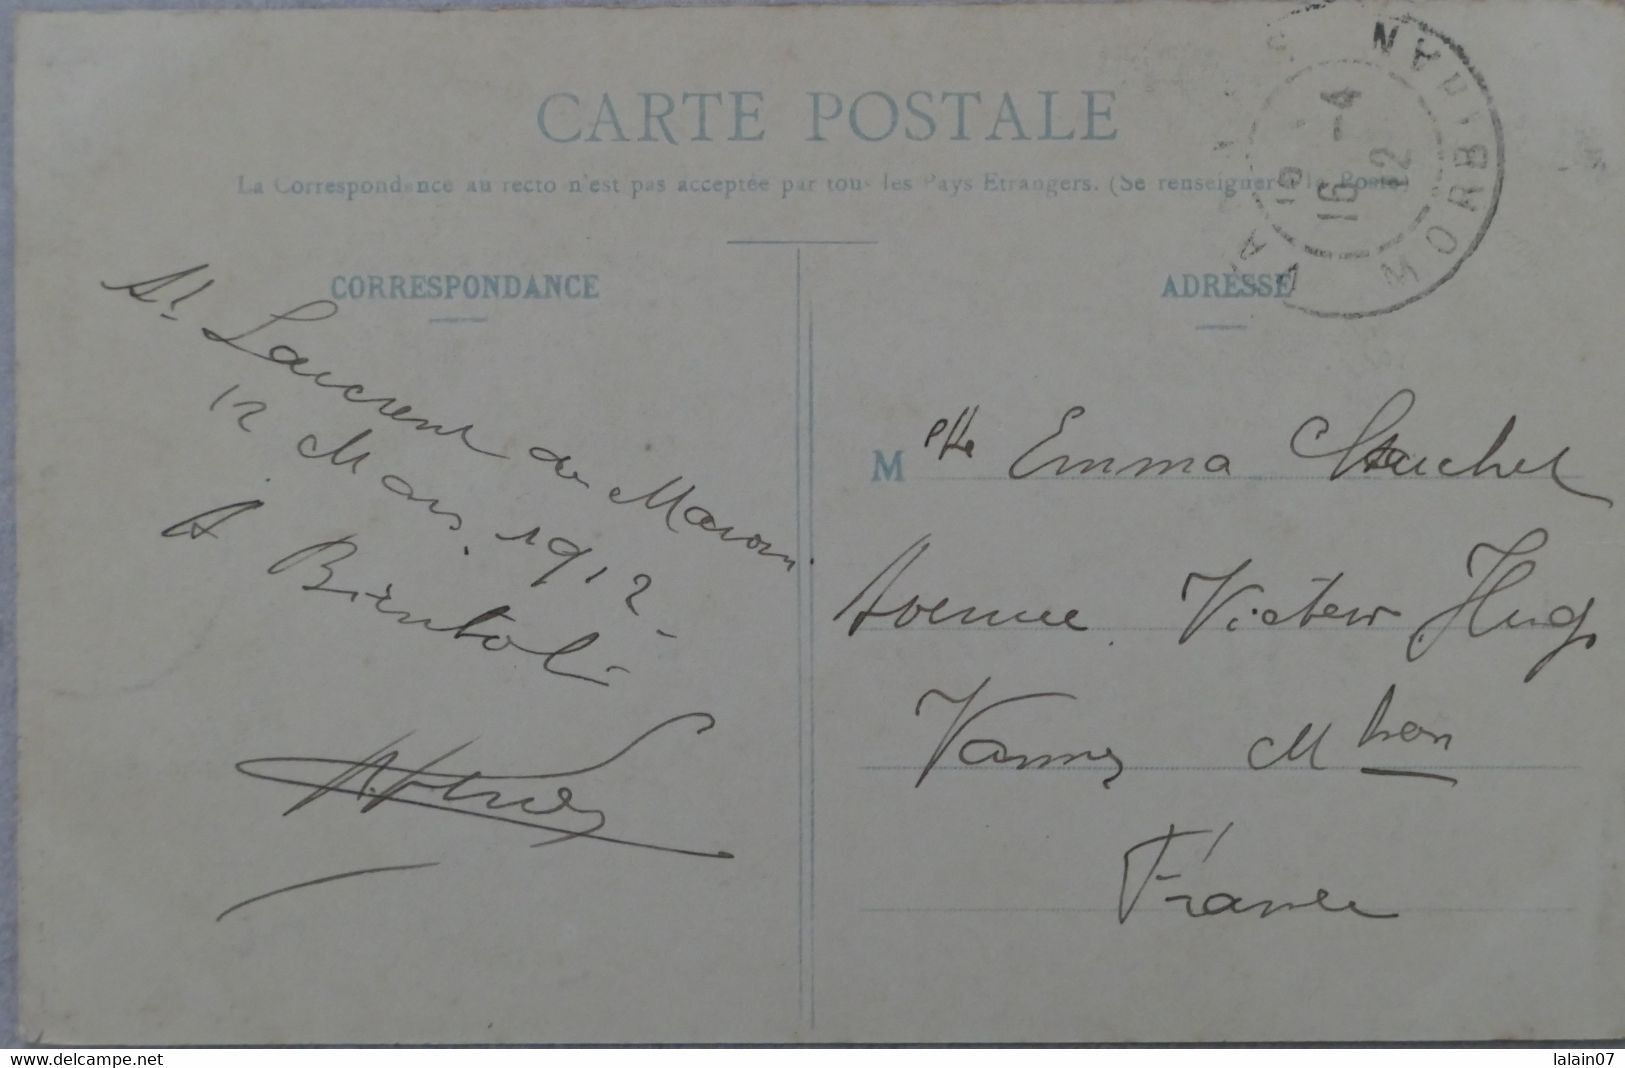 CARTE POSTALE
La Correspondance au recto n'est pas acceptée par tous les Pays Etrangers. (Se renseigner à la Poste)
CORRESPONDANCE
St Laurent du Maroni.
12 Mars. 1912 -
A Bientot
ADRESSE
M elle Emma
Avenue Victor Hugo
Vannes Mbhan
France
VANNES MORBIHAN
16 -4
12
delcampe.net
lalain07